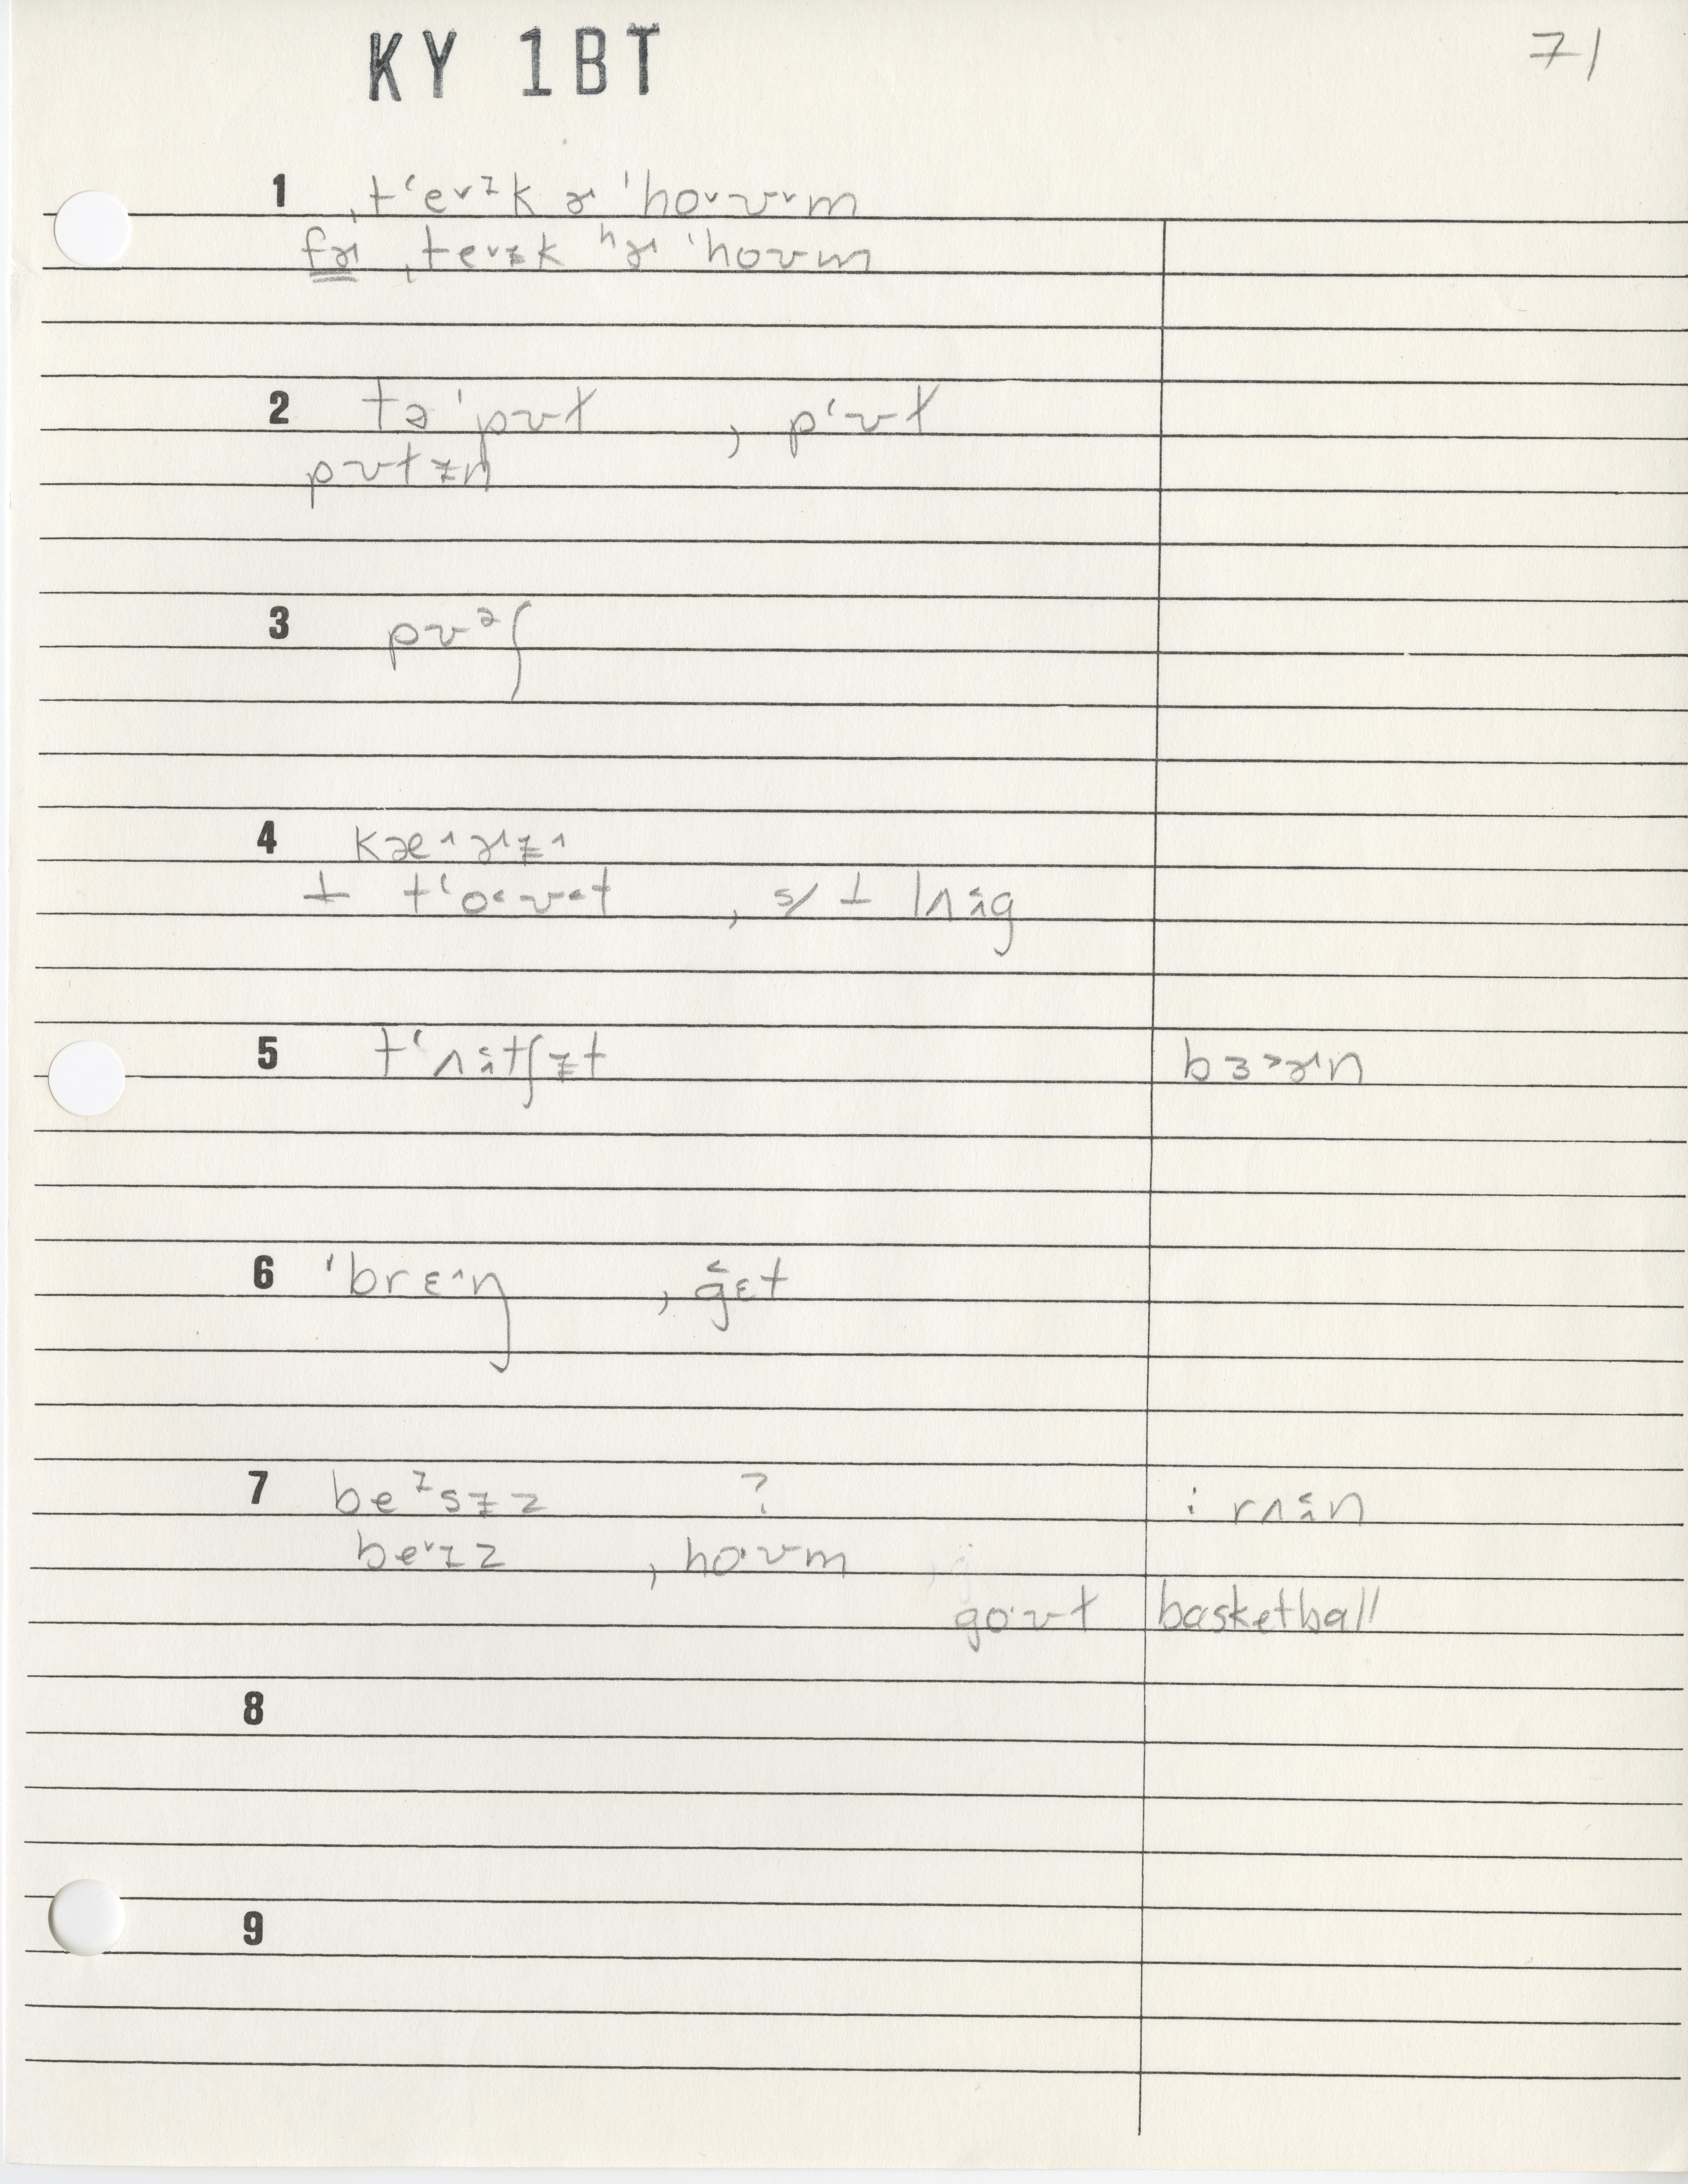 KY 1BT
71
1 ˌt‘e˅ᵻk ɚ ˈho˅ʊ˅m
fɚ ˌte˅ᵻk ʰɚ ˈhoʊm
2 tə ˈpʊt , p‘ʊt
pʊtᵻn
3 pʊᵊʃ
4 kæ^ɚᵻ^
⊥ t‘o<ʊ<t , s/ ⊥ lʌɨ̆g
5 t‘ʌɨ̆tʃᵻt bɜ>ɚn
6 ˈbrɛ^ŋ , g̑ɛt
7 beᶦsᵻz ? : rʌɨ̆n
be˅ᵻz , ho·ʊm
go·ʊt basketball
8
9